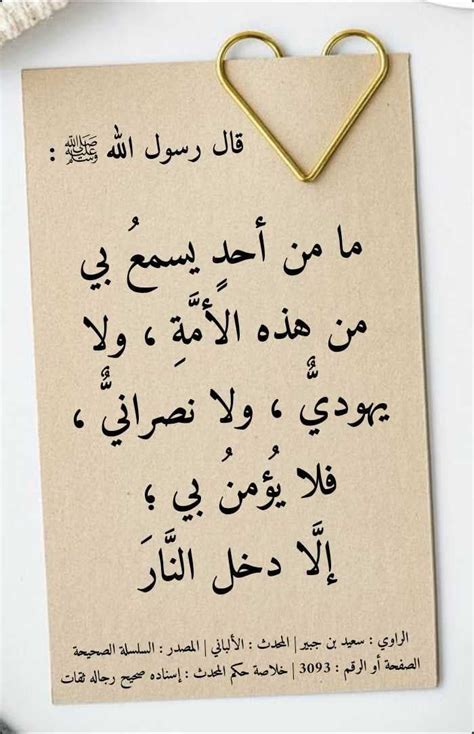 قال رسول الله ﷺ :
ما من أحدٍ يسمعُ بي
من هذه الأمَّةِ ، ولا
يهوديٌّ ، ولا نصرانيٌّ ،
فلا يُؤمنُ بي ؛
إلَّا دخل النَّارَ
الراوي : سعيد بن جبير | المحدث : الألباني | المصدر : السلسلة الصحيحة
الصفحة أو الرقم : 3093 | خلاصة حكم المحدث : إسناده صحيح رجاله ثقات